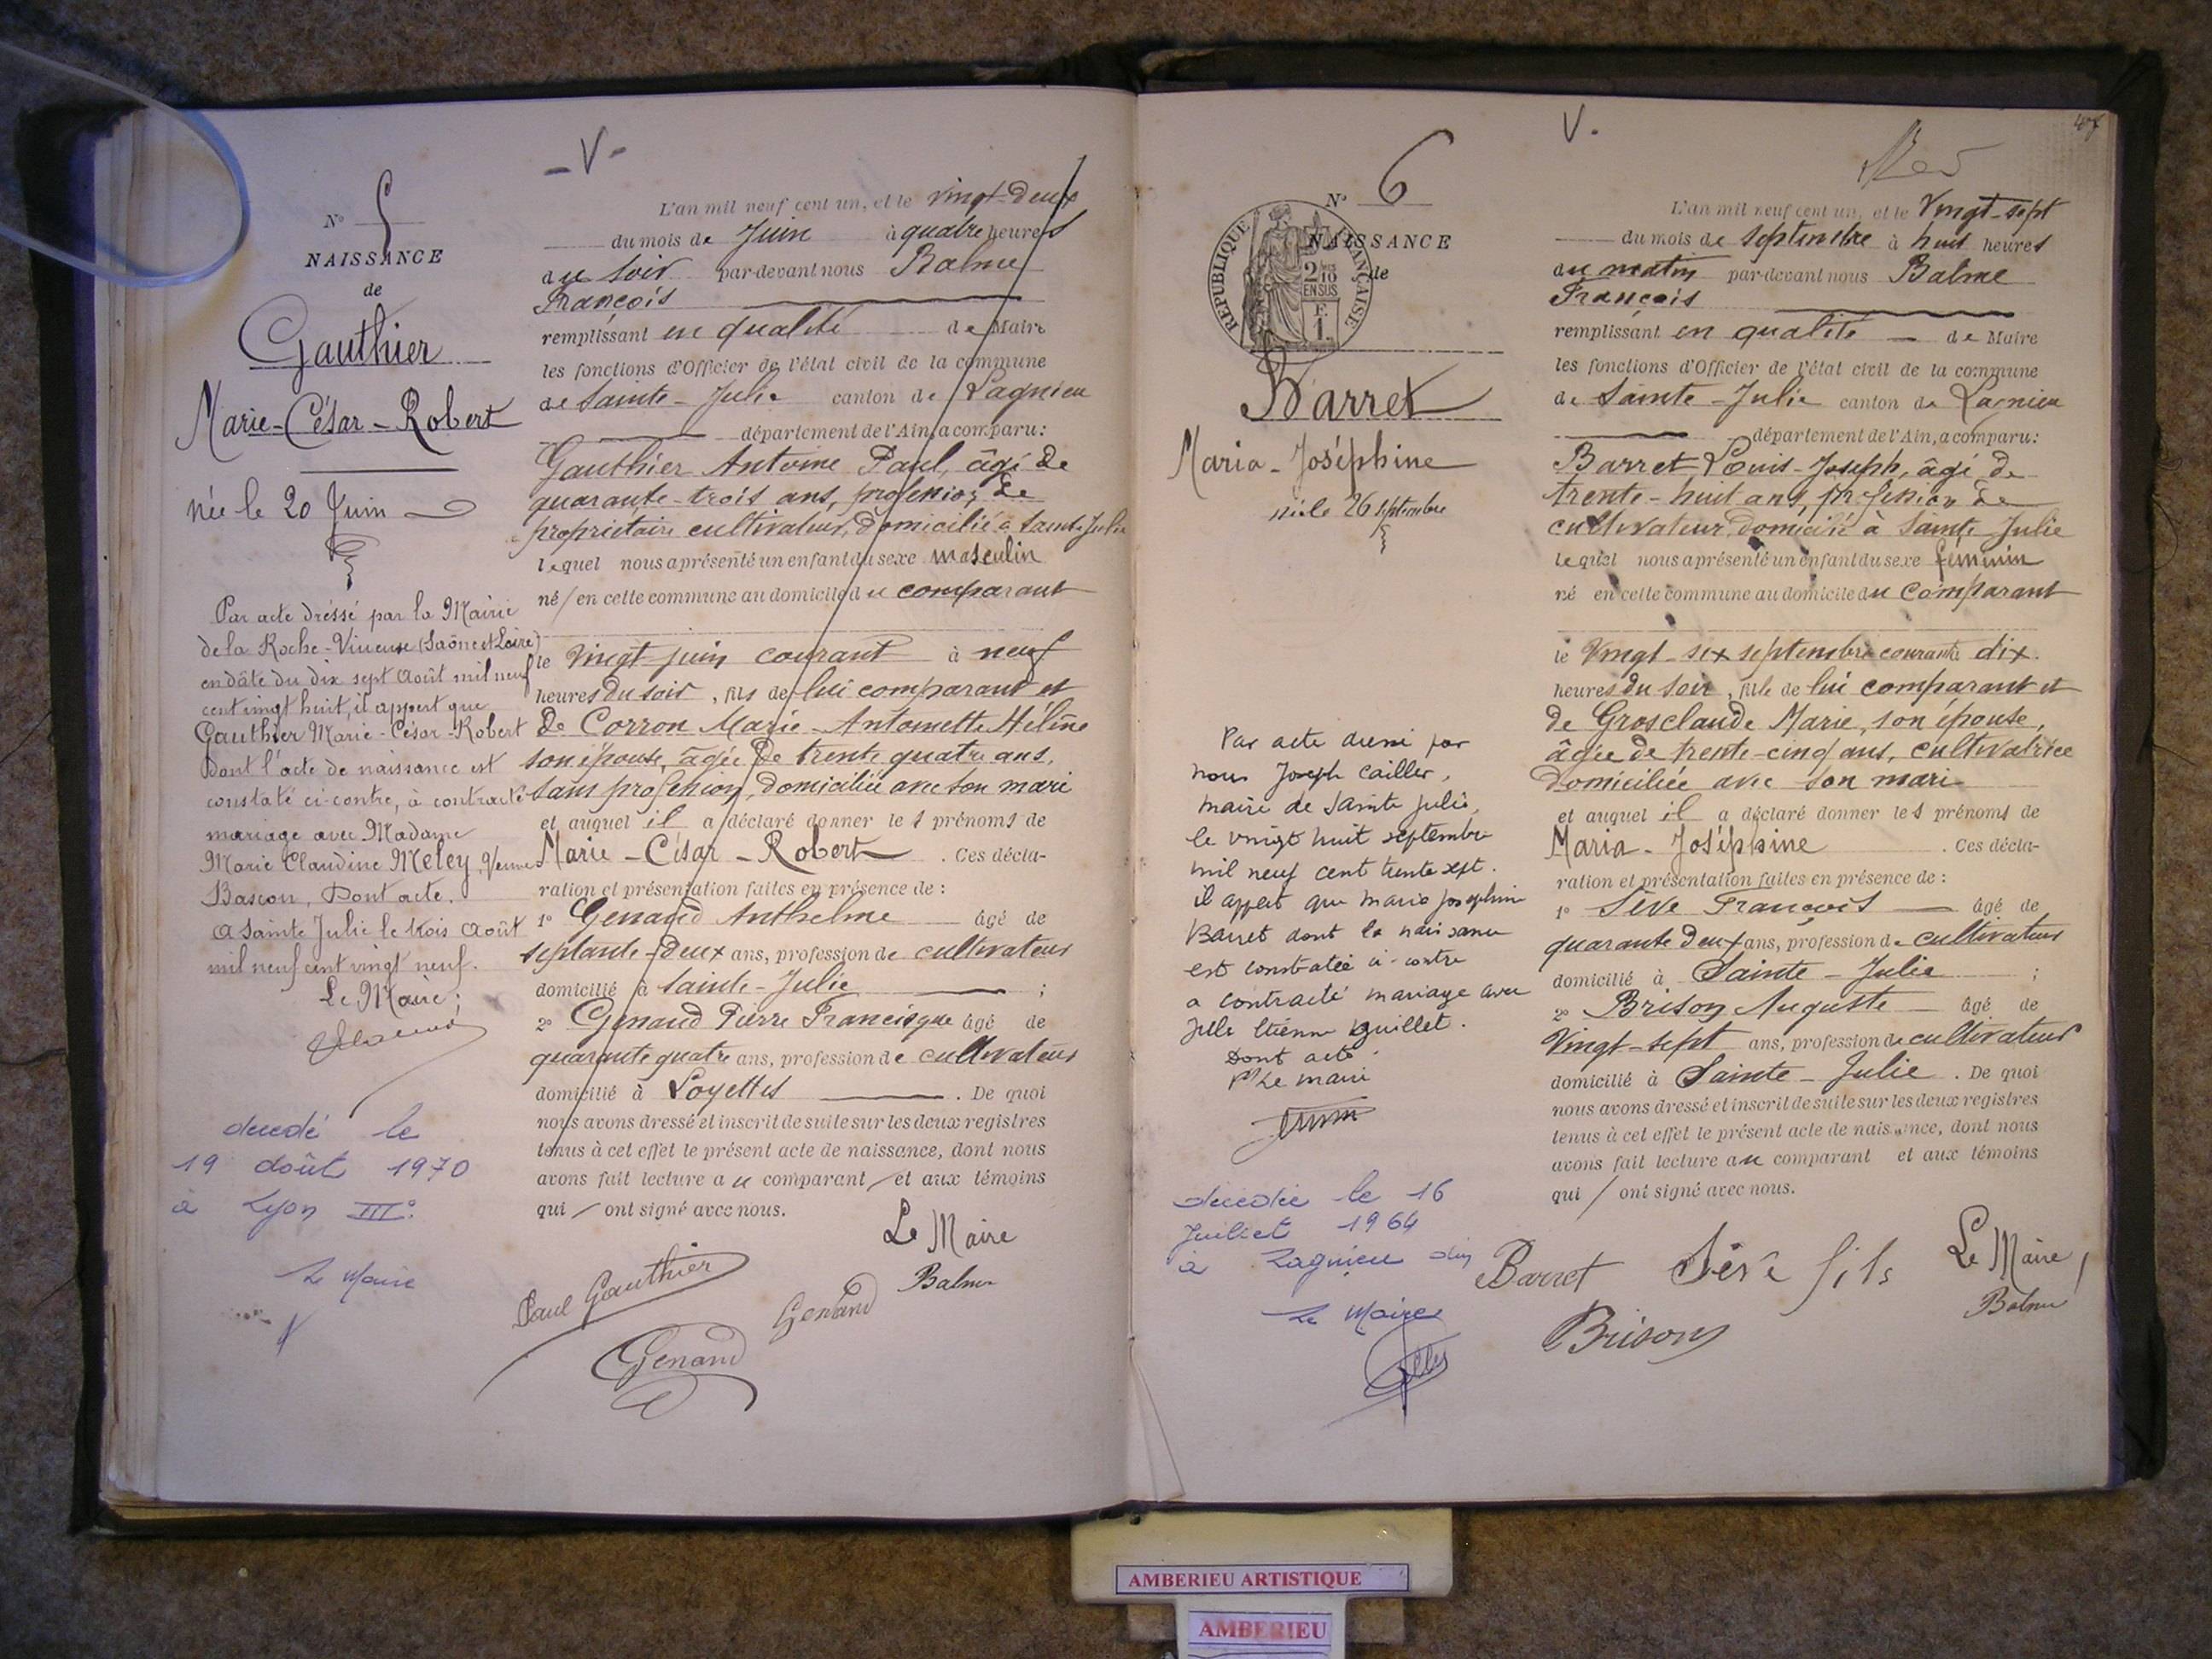 - V -
N° 5
NAISSANCE
de
Gauthier
Marie-César-Robert
née le 20 Juin
Par acte dréssé par la Mairie
de la Roche-Vineuse (Saône et Loire)
en dâte du dix sept Août mil neuf
cent vingt huit, il appert que
Gauthier Marie-César-Robert
dont l'acte de naissance est
constaté ci-contre, à contracté
mariage avec Madame
Marie Claudine Meley, Veuve
Bascon, Dont acte.
A Sainte Julie le trois Août
mil neuf cent vingt neuf.
Le Maire;
décédé le
19 août 1970
à Lyon IIIe.
Le Maire
L'an mil neuf cent un, et le vingt-deux
du mois de Juin à quatre heures
du soir par-devant nous Balme
François
remplissant en qualité de Maire
les fonctions d'Officier de l'état civil de la commune
de Sainte-Julie canton de Lagnieu
département de l'Ain, a comparu:
Gauthier Antoine Paul, âgé de
quarante-trois ans, profession de
propriétaire cultivateur, domicilié à Sainte Julie
lequel nous a présenté un enfant du sexe masculin
né / en cette commune au domicile du comparant
le Vingt juin courant à neuf
heures du soir, fils de lui comparant et
de Corron Marie-Antoinette Hélène
son épouse, âgée de trente quatre ans,
sans profession, domiciliée avec son mari
et auquel il a déclaré donner les prénoms de
Marie-César-Robert. Ces décla-
ration et présentation faites en présence de :
1° Genaud Anthelme âgé de
septante-deux ans, profession de cultivateur
domicilié à Sainte-Julie ;
2° Genaud Pierre Francisque âgé de
quarante quatre ans, profession de cultivateur
domicilié à Loyettes . De quoi
nous avons dressé et inscrit de suite sur les deux registres
tenus à cet effet le présent acte de naissance, dont nous
avons fait lecture au comparant et aux témoins
qui / ont signé avec nous.
Le Maire
Paul Gauthier Genaud Balme
Genaud
V.
47
N° 6
RÉPUBLIQUE FRANÇAISE
2/10 EN SUS
F. 1.
NAISSANCE
de
Barret
Maria-Joséphine
née le 26 septembre
Par acte dressé par
nous Joseph Cailler,
maire de Sainte Julie,
le vingt huit septembre
mil neuf cent trente sept.
il appert que Maria Joséphine
Barret dont la naissance
est constatée ci-contre
a contracté mariage avec
Jules Etienne Guillet.
Dont acte.
Pr Le maire
décédée le 16
Juillet 1964
à Lagnieu Ain
Le Maire
L'an mil neuf cent un, et le Vingt-sept
du mois de septembre à huit heures
du matin par-devant nous Balme
François
remplissant en qualité de Maire
les fonctions d'Officier de l'état civil de la commune
de Sainte-Julie canton de Lagnieu
département de l'Ain, a comparu:
Barret Louis-Joseph, âgé de
trente-huit ans, profession de
cultivateur, domicilié à Sainte Julie
lequel nous a présenté un enfant du sexe féminin
né en cette commune au domicile du comparant
le Vingt-six septembre courant à dix
heures du soir, fille de lui comparant et
de Grosclaude Marie, son épouse,
âgée de trente-cinq ans, cultivatrice
domiciliée avec son mari
et auquel il a déclaré donner les prénoms de
Maria-Joséphine. Ces décla-
ration et présentation faites en présence de :
1° Sève François âgé de
quarante deux ans, profession de cultivateur
domicilié à Sainte-Julie ;
2° Brison Auguste âgé de
Vingt-sept ans, profession de cultivateur
domicilié à Sainte-Julie. De quoi
nous avons dressé et inscrit de suite sur les deux registres
tenus à cet effet le présent acte de naissance, dont nous
avons fait lecture au comparant et aux témoins
qui / ont signé avec nous.
Barret Sève fils Le Maire,
Brison Balme
AMBERIEU ARTISTIQUE
AMBERIEU